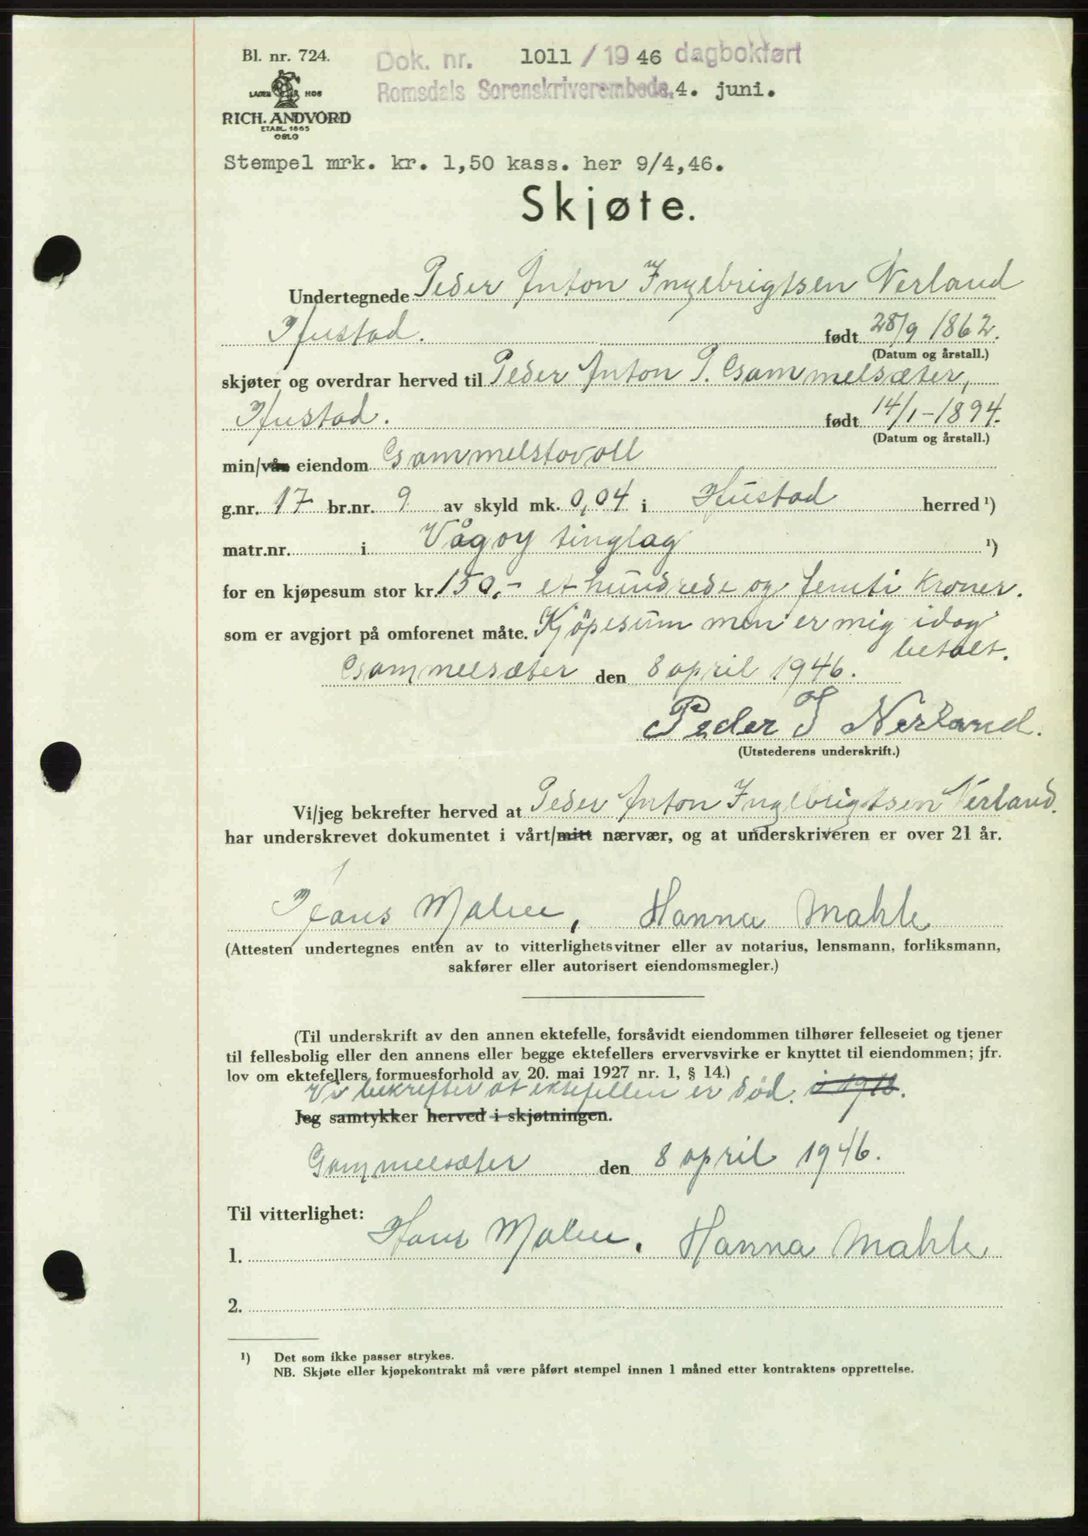 Bl. nr. 724.
Dok. nr. 1011 / 19 46 dagbokført
LAGER HOS
Romsdals Sorenskriverembede, 4. juni.
RICH. ANDVORD
ETABL. 1865
OSLO
Stempel mrk. kr. 1,50 kass. her 9/4,46.
Skjøte.
Undertegnede Peder Anton Ingebrigtsen Nerland
Hustad. født 28/9 1862.
(Datum og årstall.)
skjøter og overdrar herved til Peder Anton P. Gammelsæter,
Hustad. født 14/1-1894.
(Datum og årstall.)
min/vår eiendom Gammelstovoll
g.nr. 17 br.nr. 9 av skyld mk. 0,04 i Hustad herred ¹)
matr.nr. i Vågøy tinglag ¹)
for en kjøpesum stor kr. 150,- et hundrede og femti kroner.
som er avgjort på omforenet måte. Kjöpesummen er mig idag
betalt.
Gammelsæter den 8 april 1946.
Peder I Nerland.
(Utstederens underskrift.)
Vi/jeg bekrefter herved at Peder Anton Ingebrigtsen Nerland.
har underskrevet dokumentet i vårt/mitt nærvær, og at underskriveren er over 21 år.
Hans Malen, Hanna Mahle
(Attesten undertegnes enten av to vitterlighetsvitner eller av notarius, lensmann, forliksmann,
sakfører eller autorisert eiendomsmegler.)
(Til underskrift av den annen ektefelle, forsåvidt eiendommen tilhører felleseiet og tjener
til fellesbolig eller den annens eller begge ektefellers ervervsvirke er knyttet til eiendommen; jfr.
lov om ektefellers formuesforhold av 20. mai 1927 nr. 1, § 14.)
Vi bekrefter at ektefellen er död.
Jeg samtykker herved i skjøtningen.
Gammelsæter den 8 april 1946.
Til vitterlighet:
1. Hans Malen, Hanna Mahle
2.
¹) Det som ikke passer strykes.
NB. Skjøte eller kjøpekontrakt må være påført stempel innen 1 måned etter kontraktens opprettelse.